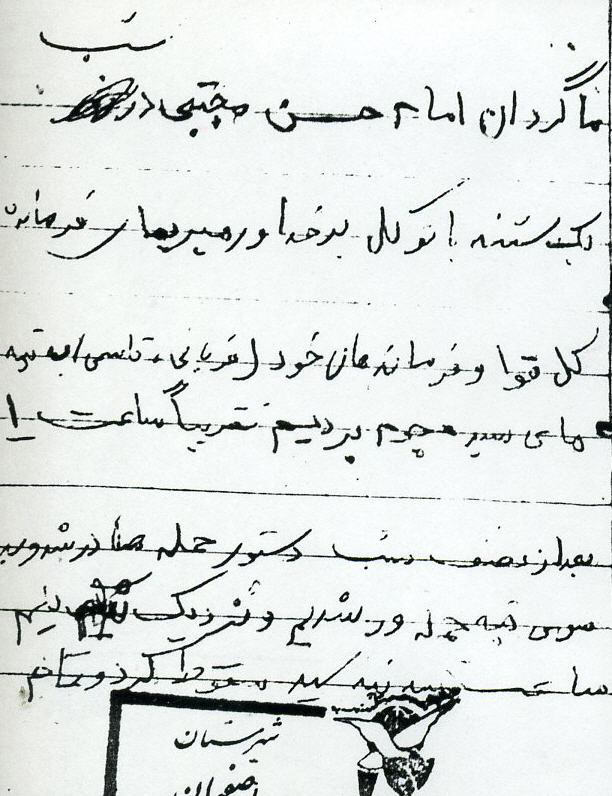 شب
ما گردان امام حسن مجتبی در
یکشنبه با توکل بر خدا و رهبریهای فرمانده
کل قوا و فرمانده هان خود (قربانی، قاسمی) به تپه
های سبز هجوم بردیم تقریباً ساعت ۱
بعد از نصف شب دستور حمله صادر شد و به
سوی تپه حمله ور شدیم و نزدیک
ساعت سه تپه سبز سقوط کرد و تمام
شهرستان
اصفهان